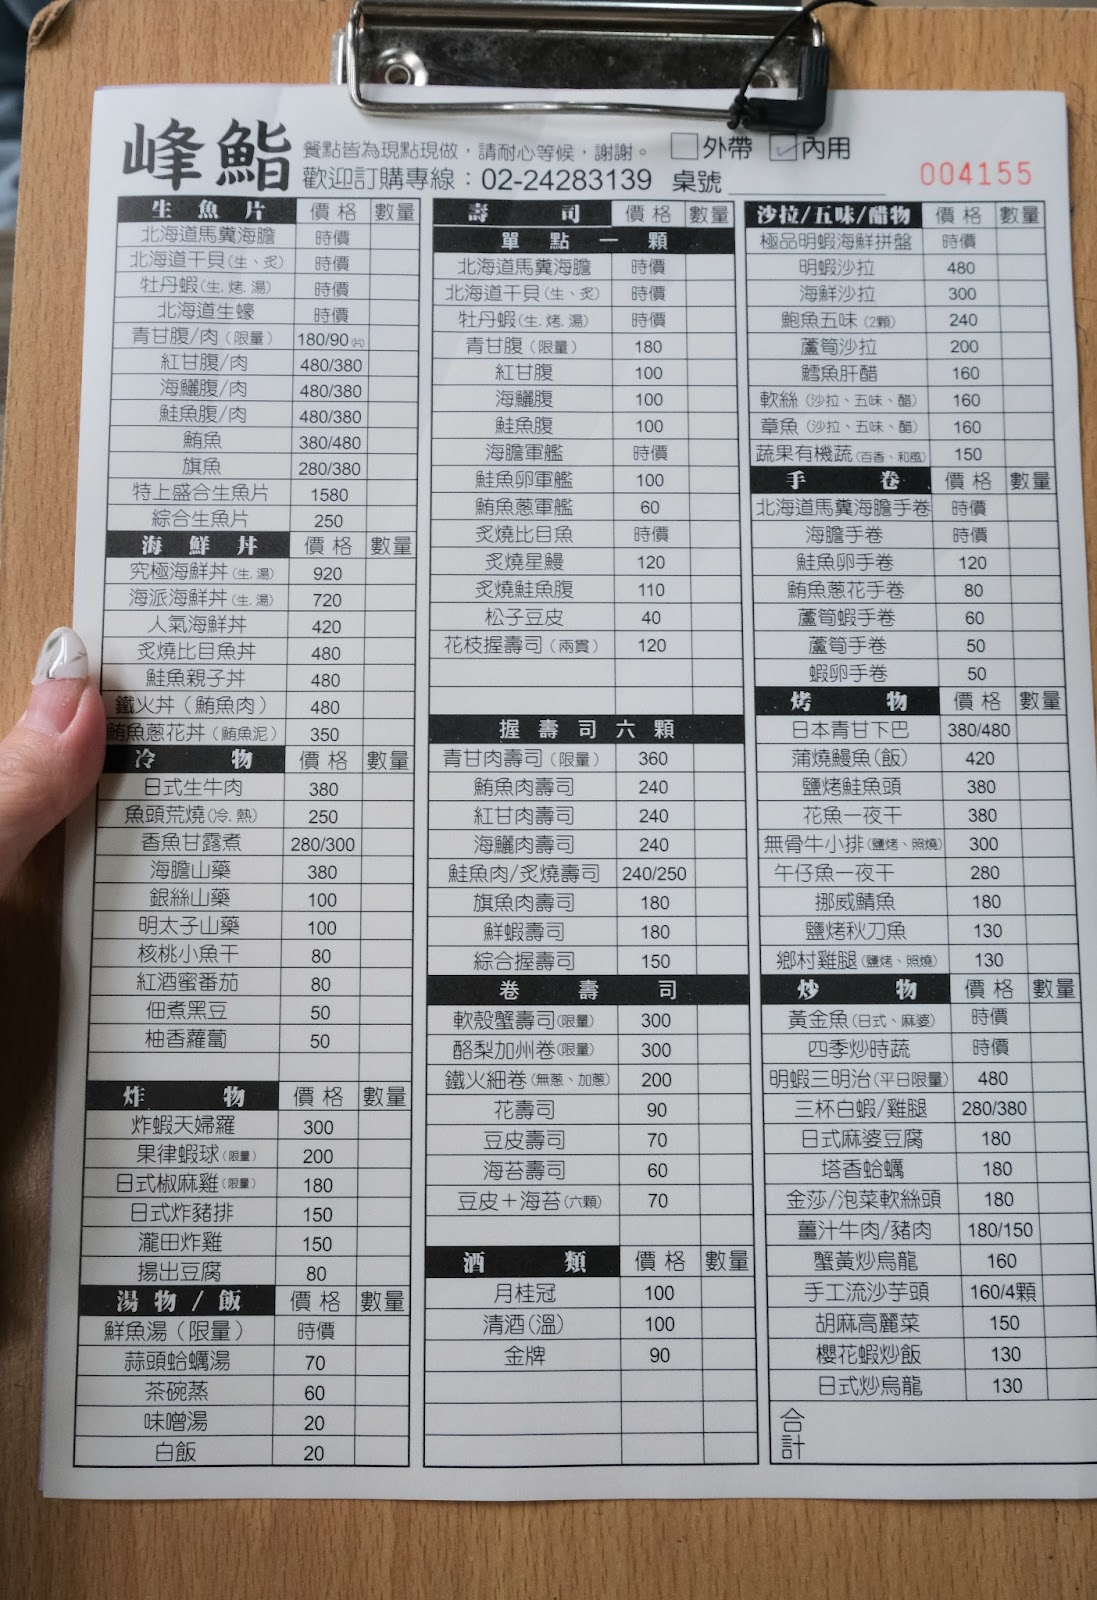 峰鮨
餐點皆為現點現做，請耐心等候，謝謝。
歡迎訂購專線：02-24283139
外帶 內用
桌號
004155
生魚片 價格 數量
北海道馬糞海膽 時價
北海道干貝(生、炙) 時價
牡丹蝦(生.烤.湯) 時價
北海道生蠔 時價
青甘腹/肉(限量) 180/90(片)
紅甘腹/肉 480/380
海鱺腹/肉 480/380
鮭魚腹/肉 480/380
鮪魚 380/480
旗魚 280/380
特上盛合生魚片 1580
綜合生魚片 250
海鮮丼 價格 數量
究極海鮮丼(生.湯) 920
海派海鮮丼(生.湯) 720
人氣海鮮丼 420
炙燒比目魚丼 480
鮭魚親子丼 480
鐵火丼(鮪魚肉) 480
鮪魚蔥花丼(鮪魚泥) 350
冷物 價格 數量
日式生牛肉 380
魚頭荒燒(冷.熱) 250
香魚甘露煮 280/300
海膽山藥 380
銀絲山藥 100
明太子山藥 100
核桃小魚干 80
紅酒蜜番茄 80
佃煮黑豆 50
柚香蘿蔔 50
炸物 價格 數量
炸蝦天婦羅 300
果律蝦球(限量) 200
日式椒麻雞(限量) 180
日式炸豬排 150
瀧田炸雞 150
揚出豆腐 80
湯物/飯 價格 數量
鮮魚湯(限量) 時價
蒜頭蛤蠣湯 70
茶碗蒸 60
味噌湯 20
白飯 20
壽司 價格 數量
單點一顆
北海道馬糞海膽 時價
北海道干貝(生、炙) 時價
牡丹蝦(生.烤.湯) 時價
青甘腹(限量) 180
紅甘腹 100
海鱺腹 100
鮭魚腹 100
海膽軍艦 時價
鮭魚卵軍艦 100
鮪魚蔥軍艦 60
炙燒比目魚 時價
炙燒星鰻 120
炙燒鮭魚腹 110
松子豆皮 40
花枝握壽司(兩貫) 120
握壽司六顆
青甘肉壽司(限量) 360
鮪魚肉壽司 240
紅甘肉壽司 240
海鱺肉壽司 240
鮭魚肉/炙燒壽司 240/250
旗魚肉壽司 180
鮮蝦壽司 180
綜合握壽司 150
卷壽司
軟殼蟹壽司(限量) 300
酪梨加州卷(限量) 300
鐵火細卷(無蔥、加蔥) 200
花壽司 90
豆皮壽司 70
海苔壽司 60
豆皮＋海苔(六顆) 70
酒類 價格 數量
月桂冠 100
清酒(溫) 100
金牌 90
沙拉/五味/醋物 價格 數量
極品明蝦海鮮拼盤 時價
明蝦沙拉 480
海鮮沙拉 300
鮑魚五味(2顆) 240
蘆筍沙拉 200
鱈魚肝醋 160
軟絲(沙拉、五味、醋) 160
章魚(沙拉、五味、醋) 160
蔬果有機蔬(百香、和風) 150
手卷 價格 數量
北海道馬糞海膽手卷 時價
海膽手卷 時價
鮭魚卵手卷 120
鮪魚蔥花手卷 80
蘆筍蝦手卷 60
蘆筍手卷 50
蝦卵手卷 50
烤物 價格 數量
日本青甘下巴 380/480
蒲燒鰻魚(飯) 420
鹽烤鮭魚頭 380
花魚一夜干 380
無骨牛小排(鹽烤、照燒) 300
午仔魚一夜干 280
挪威鯖魚 180
鹽烤秋刀魚 130
鄉村雞腿(鹽烤、照燒) 130
炒物 價格 數量
黃金魚(日式、麻婆) 時價
四季炒時蔬 時價
明蝦三明治(平日限量) 480
三杯白蝦/雞腿 280/380
日式麻婆豆腐 180
塔香蛤蠣 180
金莎/泡菜軟絲頭 180
薑汁牛肉/豬肉 180/150
蟹黃炒烏龍 160
手工流沙芋頭 160/4顆
胡麻高麗菜 150
櫻花蝦炒飯 130
日式炒烏龍 130
合計